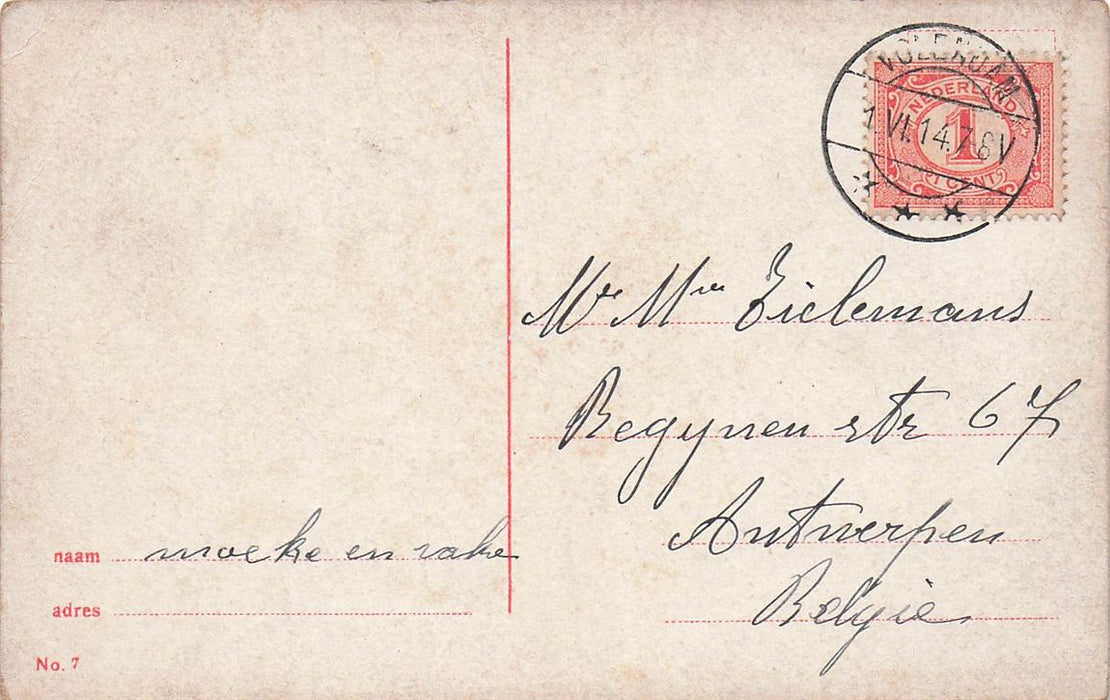 VOLENDAM
1.VI.14.7-8V
NEDERLAND
1
CENT
Mr Mrs Tielemans
Begynen str 67
Antwerpen
België
naam moeke en vake
adres
No. 7